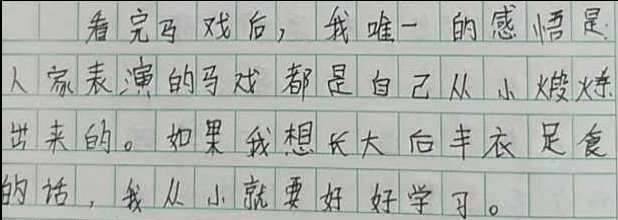 看完马戏后，我唯一的感悟是
人家表演的马戏都是自己从小煅炼
出来的。如果我想长大后丰衣足食
的话，我从小就要好好学习。